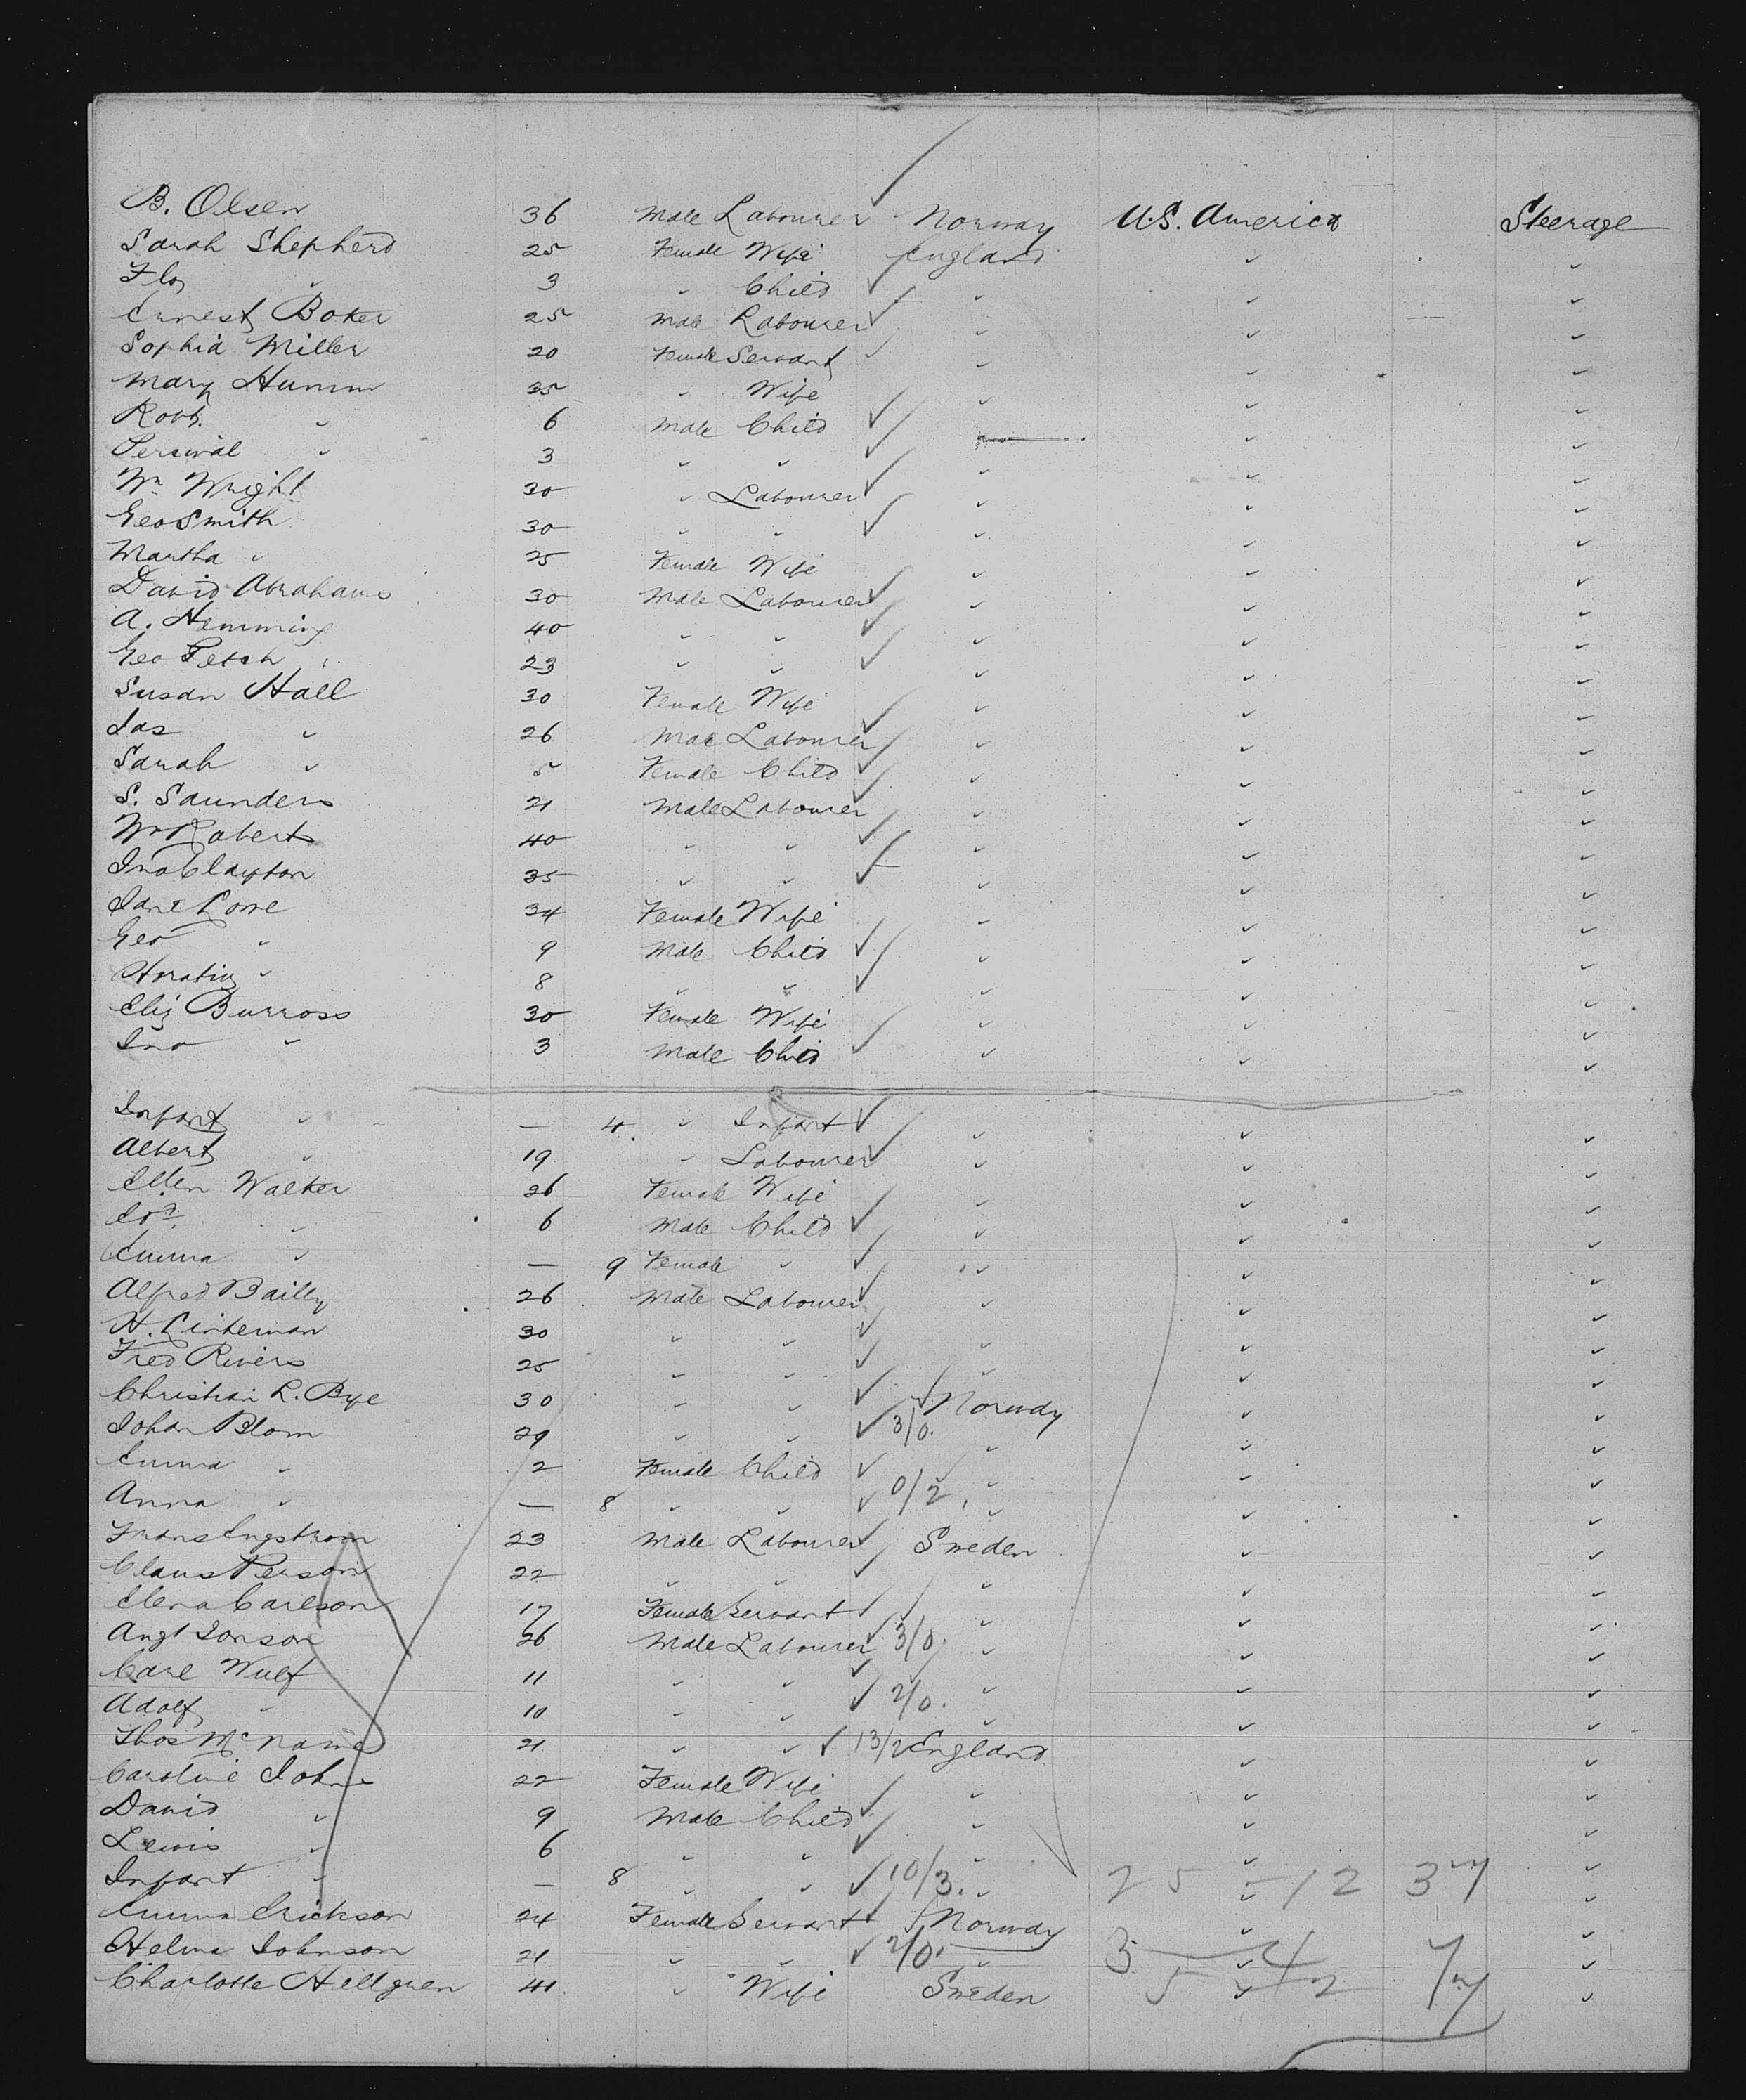 B. Olsen 36 Male Labourer Norway U.S. America Steerage
Sarah Shepherd 25 Female Wife England " "
Flo " 3 " Child " " "
Ernest Baker 25 Male Labourer " " "
Sophia Miller 20 Female Servant " " "
Mary Humm 35 " Wife " " "
Robt. " 6 Male Child " " "
Percival " 3 " " " " "
Wm Wright 30 " Labourer " " "
Geo Smith 30 " " " " "
Martha " 25 Female Wife " " "
David Abrahams 30 Male Labourer " " "
A. Hemming 40 " " " " "
Geo Petch 23 " " " " "
Susan Hall 30 Female Wife " " "
Jas " 26 Male Labourer " " "
Sarah " 5 Female Child " " "
S. Saunders 21 Male Labourer " " "
Wm Roberts 40 " " " " "
Jno Clayton 35 " " " " "
Jane Lowe 34 Female Wife " " "
Geo " 9 Male Child " " "
Horatio " 8 " " " " "
Eliz Burross 30 Female Wife " " "
Jno " 3 Male Child " " "
Infant " — 4 " Infant " " "
Albert " 19 " Labourer " " "
Ellen Walker 26 Female Wife " " "
" 6 Male Child " " "
Emma " — 9 Female " " " "
Alfred Bailly 26 Male Labourer " " "
H. Linkerman 30 " " " " "
Fred Rivers 25 " " " " "
Christian L. Bye 30 " " Norway " "
Johan Blom 29 " " 3/0. " " "
Emma " 2 Female Child " " "
Anna " — 8 " " 0/2 " " "
Frans Engstrom 23 Male Labourer Sweden " "
Claus Person 22 " " " " "
Elena Carlson 17 Female Servant " " "
Augt Jonson 26 Male Labourer 3/0. " " "
Carl Wulf 11 " " " " "
Adolf " 10 " " 2/0. " " "
Thos McNama 21 " " 13/2 England " "
Caroline Johns 22 Female Wife " " "
David " 9 Male Child " " "
Lewis " 6 " " " " "
Infant " — 8 " " 10/3. " " 25 - 12 37 "
Emma Erickson 24 Female Servant Norway " "
Helma Johnson 21 " " 2/0. " " 3 "
Charlotte Hellgren 41 " Wife Sweden " "